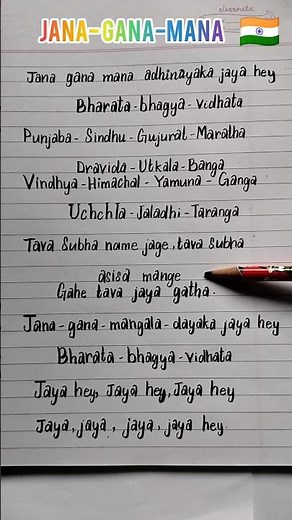 JANA-GANA-MANA 🇮🇳
classmate
Jana gana mana adhinayaka jaya hey
Bharata-bhagya-vidhata
Punjaba-Sindhu-Gujurat-Maratha
Dravida-Utkala-Banga
Vindhya-Himachal-Yamuna-Ganga
Uchchla-Jaladhi-Taranga
Tava Subha name jage, tava subha
asisa mange
Gahe tava jaya gatha.
Jana-gana-mangala-dayaka jaya hey
Bharata-bhagya-vidhata
Jaya hey, Jaya hey, Jaya hey
Jaya, jaya, jaya, jaya hey.